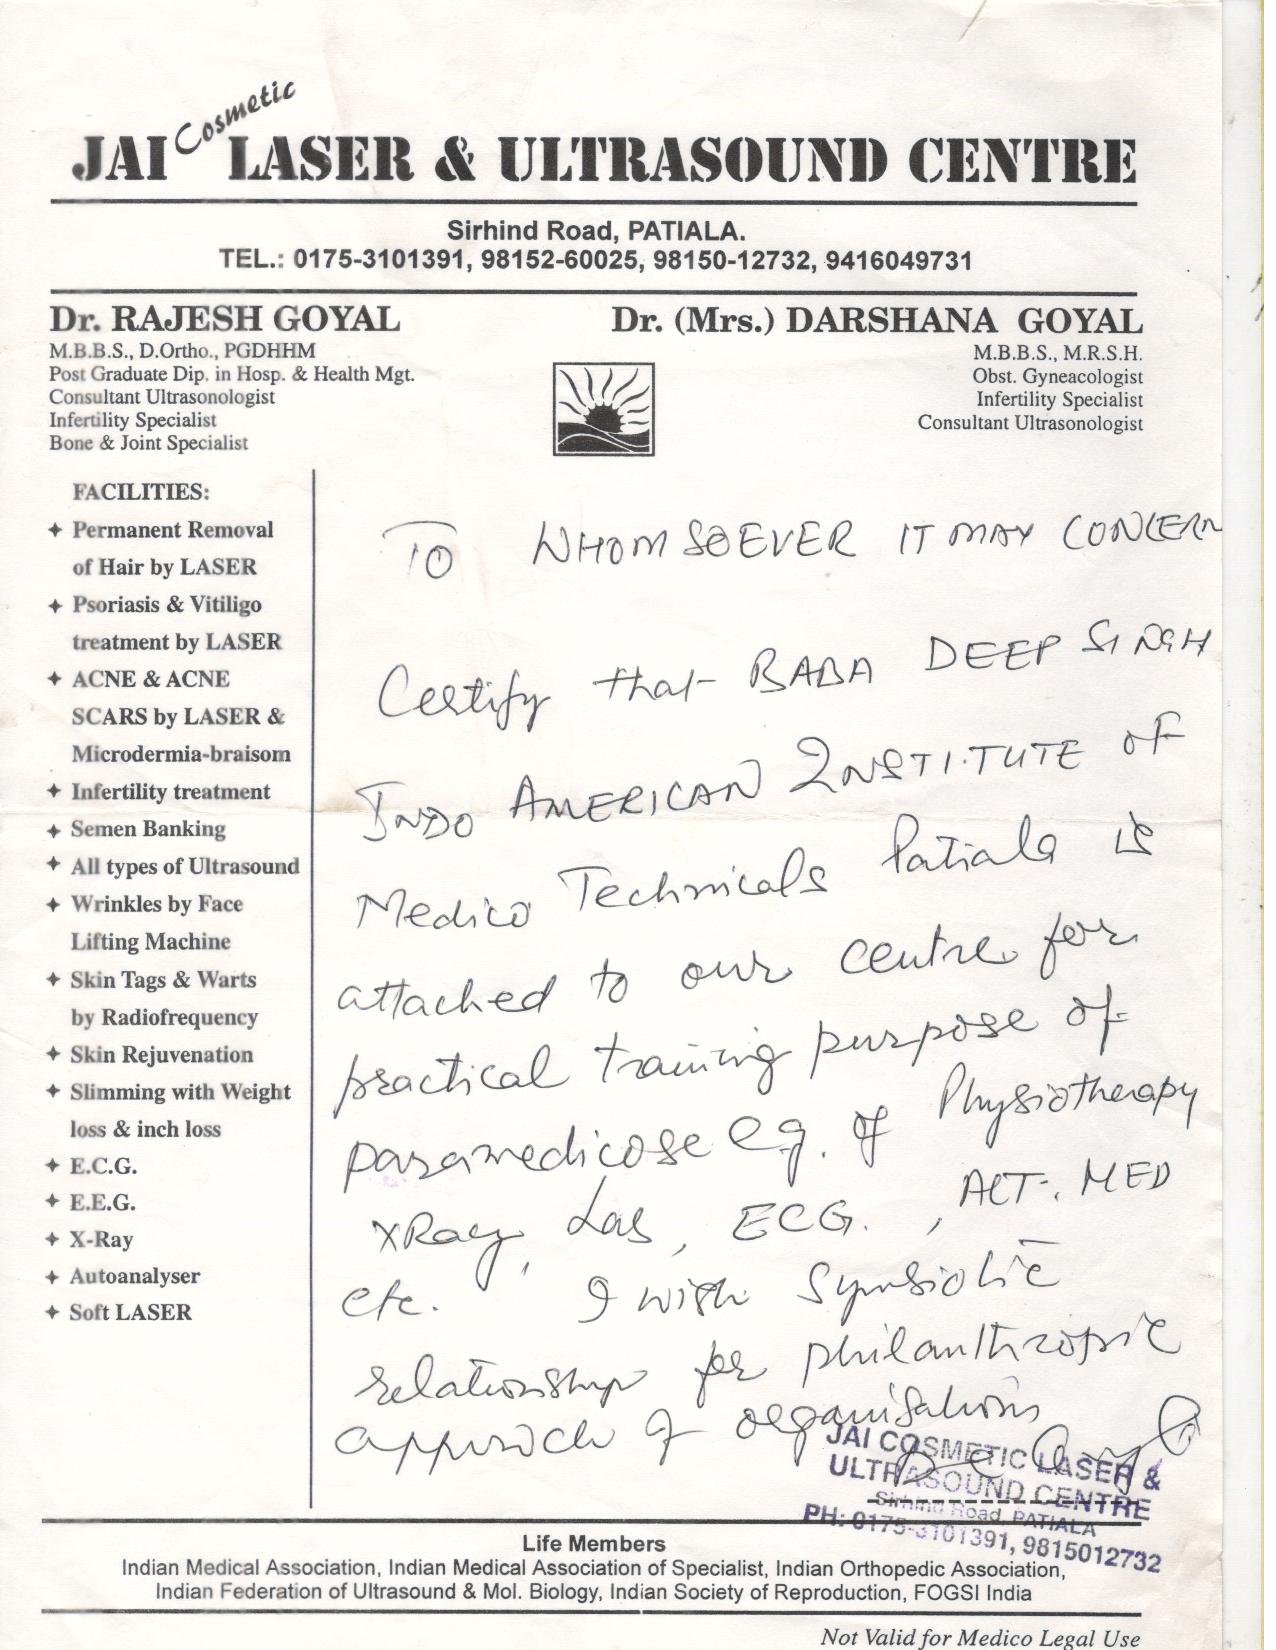 JAI Cosmetic LASER & ULTRASOUND CENTRE
Sirhind Road, PATIALA.
TEL.: 0175-3101391, 98152-60025, 98150-12732, 9416049731
Dr. RAJESH GOYAL
M.B.B.S., D.Ortho., PGDHHM
Post Graduate Dip. in Hosp. & Health Mgt.
Consultant Ultrasonologist
Infertility Specialist
Bone & Joint Specialist
Dr. (Mrs.) DARSHANA GOYAL
M.B.B.S., M.R.S.H.
Obst. Gyneacologist
Infertility Specialist
Consultant Ultrasonologist
FACILITIES:
Permanent Removal
of Hair by LASER
Psoriasis & Vitiligo
treatment by LASER
ACNE & ACNE
SCARS by LASER &
Microdermia-braisom
Infertility treatment
Semen Banking
All types of Ultrasound
Wrinkles by Face
Lifting Machine
Skin Tags & Warts
by Radiofrequency
Skin Rejuvenation
Slimming with Weight
loss & inch loss
E.C.G.
E.E.G.
X-Ray
Autoanalyser
Soft LASER
TO WHOMSOEVER IT MAY CONCERN
Certify that BABA DEEP SINGH
INDO AMERICAN INSTITUTE OF
Medico Technicals Patiala is
attached to our centre for
practical training purpose of
paramedicose eg. of Physiotherapy
XRay, Lab, ECG., ALT. MED
etc. I wish Symbiotic
relationship for philanthropic
approach of organisations
JAI COSMETIC LASER &
ULTRASOUND CENTRE
Sirhind Road, PATIALA
PH: 0175-3101391, 9815012732
Life Members
Indian Medical Association, Indian Medical Association of Specialist, Indian Orthopedic Association,
Indian Federation of Ultrasound & Mol. Biology, Indian Society of Reproduction, FOGSI India
Not Valid for Medico Legal Use